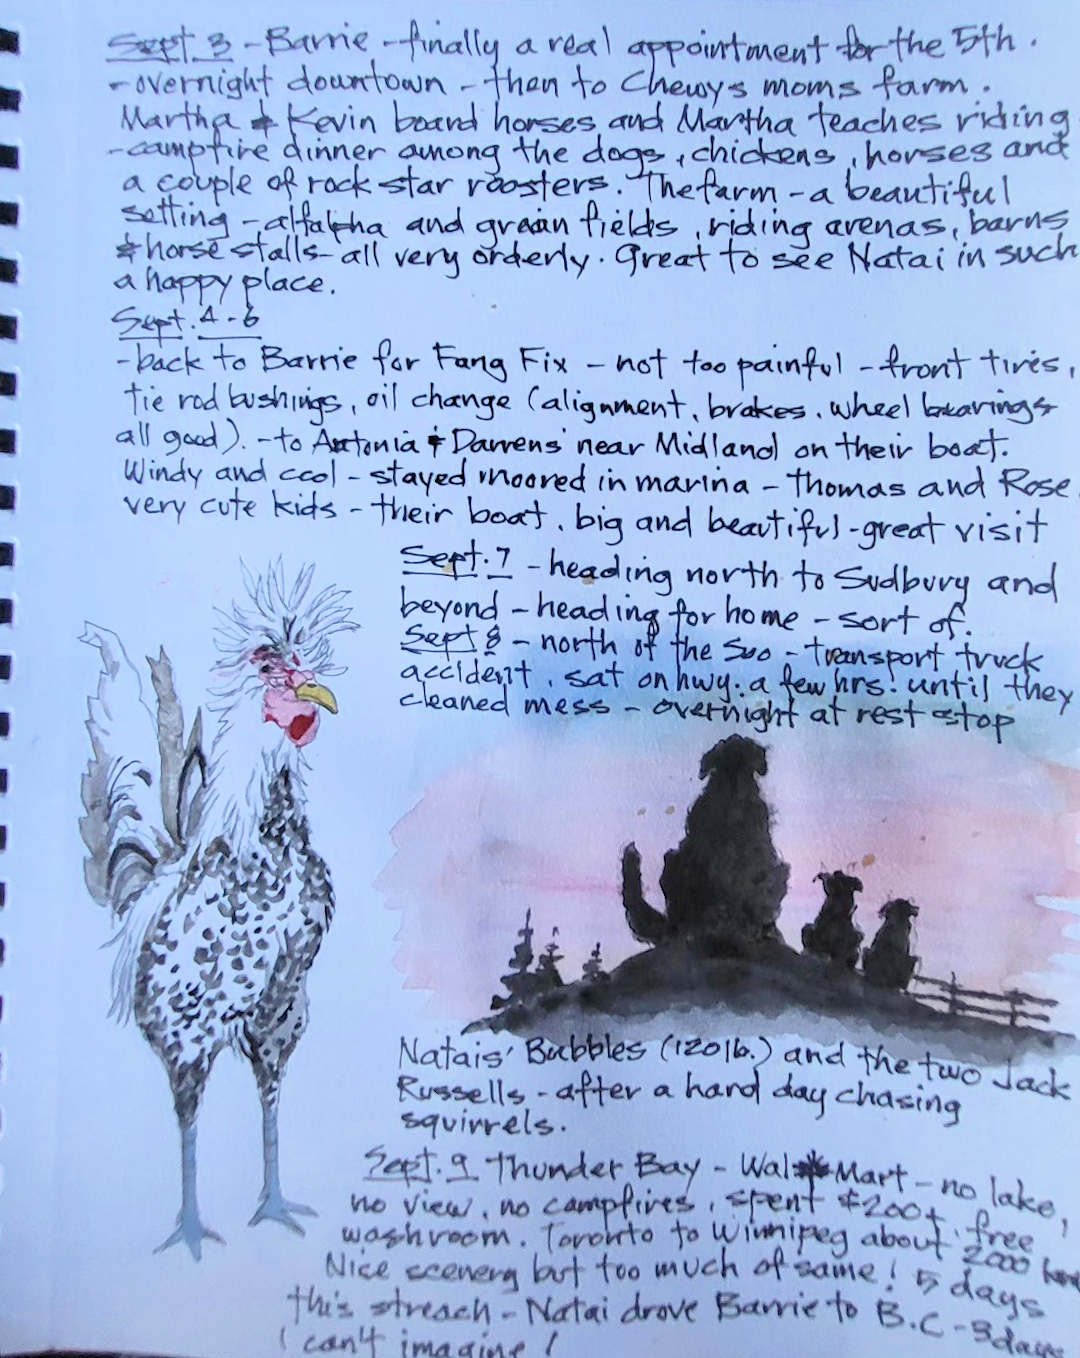 Sept 3 - Barrie - finally a real appointment for the 5th.
- overnight downtown - then to Chewys moms farm.
Martha & Kevin board horses and Martha teaches riding
- campfire dinner among the dogs, chickens, horses and
a couple of rock star roosters. The farm - a beautiful
setting - alfalpha and grain fields, riding arenas, barns
& horse stalls - all very orderly. Great to see Natai in such
a happy place.
Sept. 4 - 6
- back to Barrie for Fang Fix - not too painful - front tires,
tie rod bushings, oil change (alignment, brakes, wheel bearings
all good). - to Antonia & Darrens' near Midland on their boat.
Windy and cool - stayed moored in marina - Thomas and Rose
very cute kids - their boat, big and beautiful - great visit
Sept. 7 - heading north to Sudbury and
beyond - heading for home - sort of.
Sept 8 - north of the Soo - transport truck
accident, sat on hwy. a few hrs! until they
cleaned mess - overnight at rest stop
Natais' Bubbles (120lb.) and the two Jack
Russells - after a hard day chasing
squirrels.
Sept. 9 Thunder Bay - Wal*Mart - no lake,
no view, no campfires, spent $200+, free
washroom. Toronto to Winnipeg about 2000 km
Nice scenery but too much of same! 5 days
this streach - Natai drove Barrie to B.C - 3 days
I can't imagine!